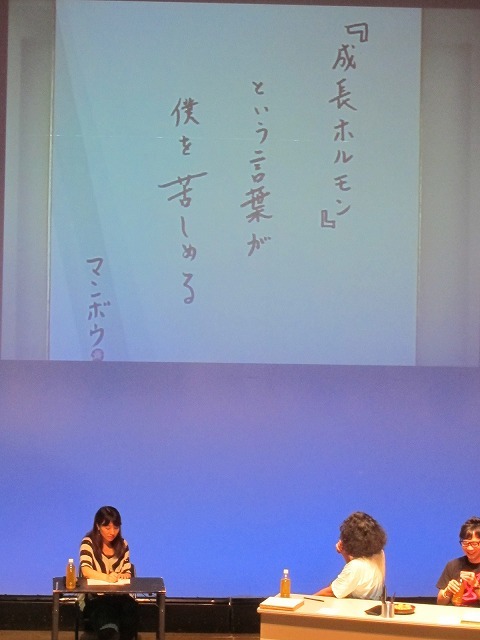 『成長ホルモン』
という言葉が
僕を苦しめる
マンボウ